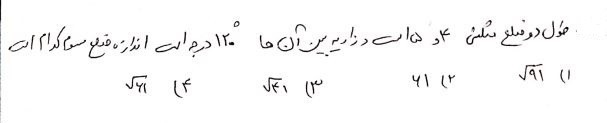 طول دو ضلع مثلثی ۴ و ۵ است و زاویه بین آن ها ۱۲۰° درجه است اندازه ضلع سوم کدام است
۱) √۹۱ ۲) ۶۱ ۳) √۴۱ ۴) √۶۱